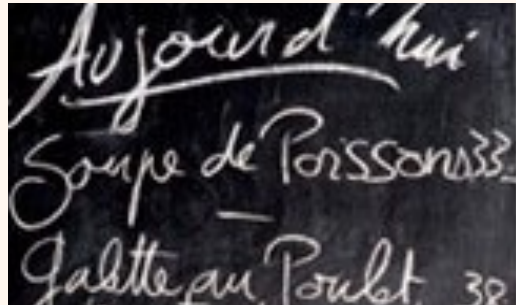 Aujourd'hui
Soupe de Poissons 33_
Galette au Poulet 38